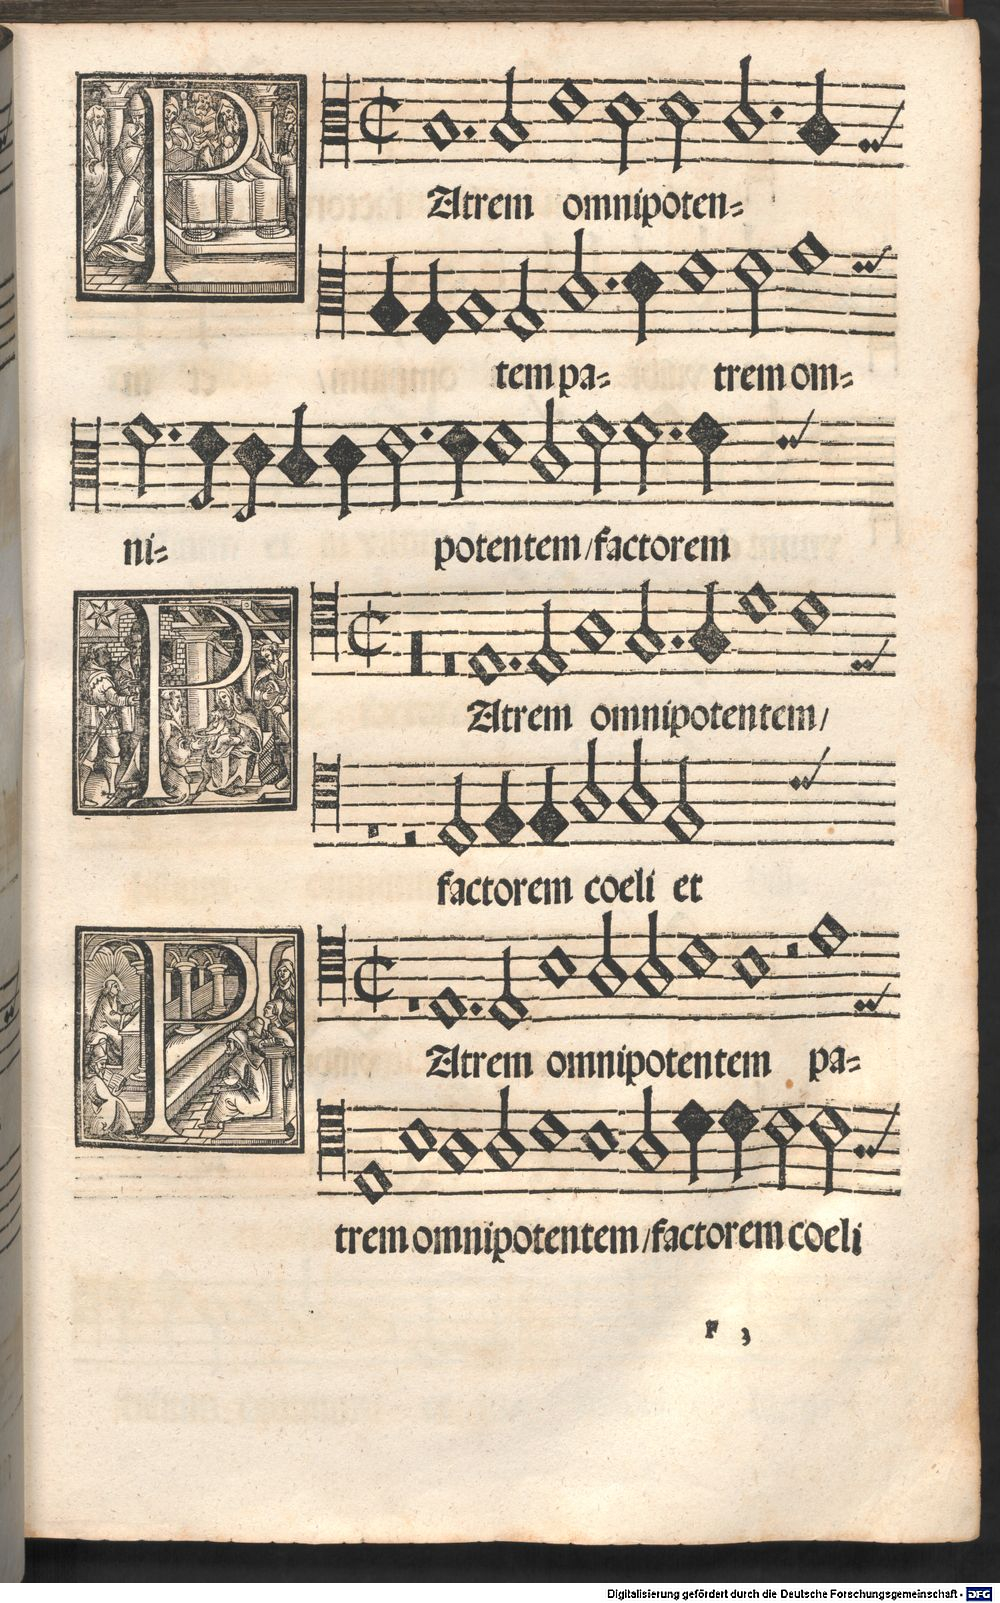 PAtrem omnipoten=
tem pa= trem om=
ni= potentem/factorem
PAtrem omnipotentem/
factorem coeli et
PAtrem omnipotentem pa=
trem omnipotentem/factorem coeli
F 3
Digitalisierung gefördert durch die Deutsche Forschungsgemeinschaft - DFG